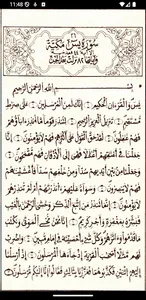 11:48
سورة يس مكية
بسم الله الرحمن الرحيم
يس ۝ والقرءان الحكيم ۝ إنك لمن المرسلين ۝ على صراط
مستقيم ۝ تنزيل العزيز الرحيم ۝ لتنذر قوما ما أنذر ءاباؤهم
فهم غفلون ۝ لقد حق القول على أكثرهم فهم لا يؤمنون ۝ إنا
جعلنا في أعنقهم أغللا فهي إلى الأذقان فهم مقمحون ۝
وجعلنا من بين أيديهم سدا ومن خلفهم سدا فأغشينهم
فهم لا يبصرون ۝ وسواء عليهم ءأنذرتهم أم لم تنذرهم
لا يؤمنون ۝ إنما تنذر من اتبع الذكر وخشي الرحمن بالغيب
فبشره بمغفرة وأجر كريم ۝ إنا نحن نحي الموتى ونكتب
ما قدموا وءاثرهم وكل شيء أحصينه في إمام مبين ۝ واضرب
لهم مثلا أصحب القرية إذ جاءها المرسلون ۝ إذ أرسلنا
إليهم اثنين فكذبوهما فعززنا بثالث فقالوا إنا إليكم مرسلون ۝